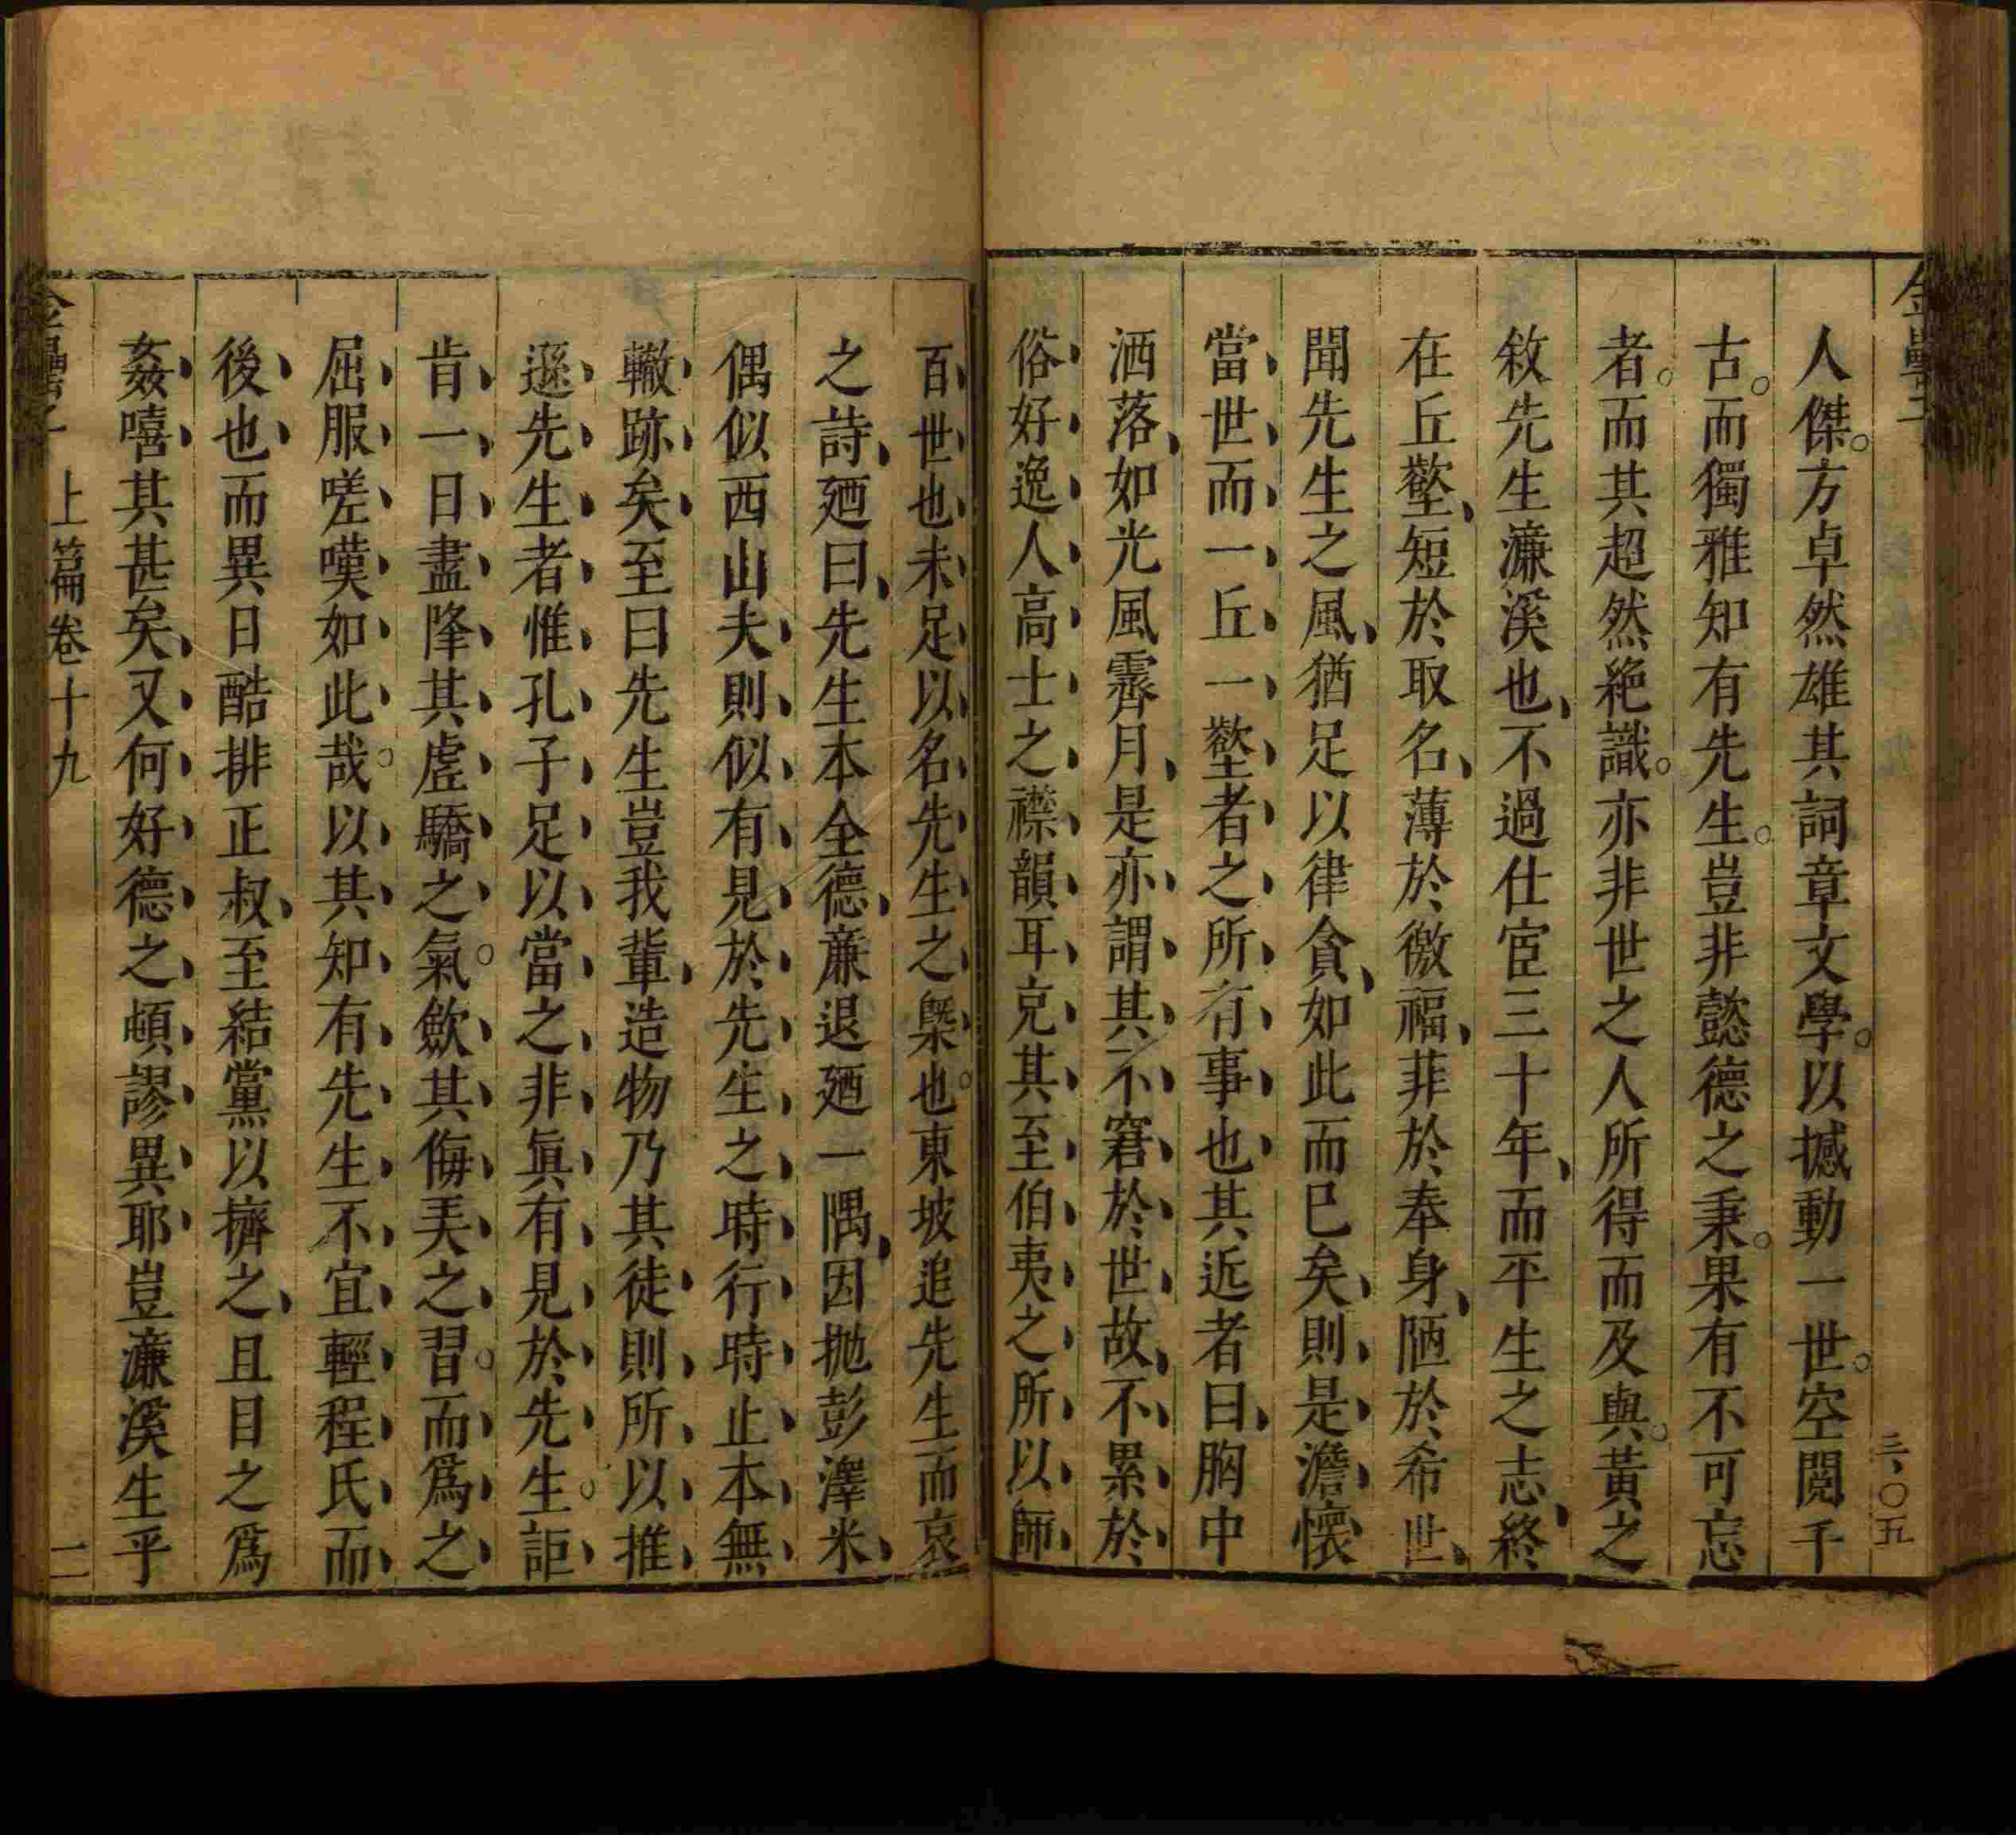 人傑。方卓然雄其詞章文學。以撼動一世。空閱千
古。而獨雅知有先生。豈非懿德之秉。果有不可忘
者。而其超然絶識。亦非世之人所得而及與。黃之
敘先生濂溪也、不過仕宦三十年、而平生之志、終
在丘壑、短於取名、薄於徼福、菲於奉身、陋於希世、
聞先生之風、猶足以律貪、如此而已矣、則是澹懷
當世而一丘一壑者之所有事也、其近者曰、胸中
洒落、如光風霽月、是亦謂其不窘於世故、不累於
俗好逸人高士之襟韻耳克其至伯夷之所以師
百世也未足以名先生之槩也。東坡追先生而哀
之詩、廼曰、先生本全德、亷退廼一隅、因拋彭澤米、
偶似西山夫則似有見於先生之時行時止本無
轍跡矣至曰先生豈我輩、造物乃其徒則所以推
遜先生者惟孔子足以當之非眞有見於先生。詎
肯一日盡降其虗驕之氣。歛其侮美之習。而爲之
屈服嗟嘆如此哉。以其知有先生不宜輕程氏而
後也而異日酷排正叔、至結黨以擠之、且目之爲
姦嘻其甚矣、又何好德之頓謬異耶豈濂溪生乎
上篇卷十九
二
三、〇五